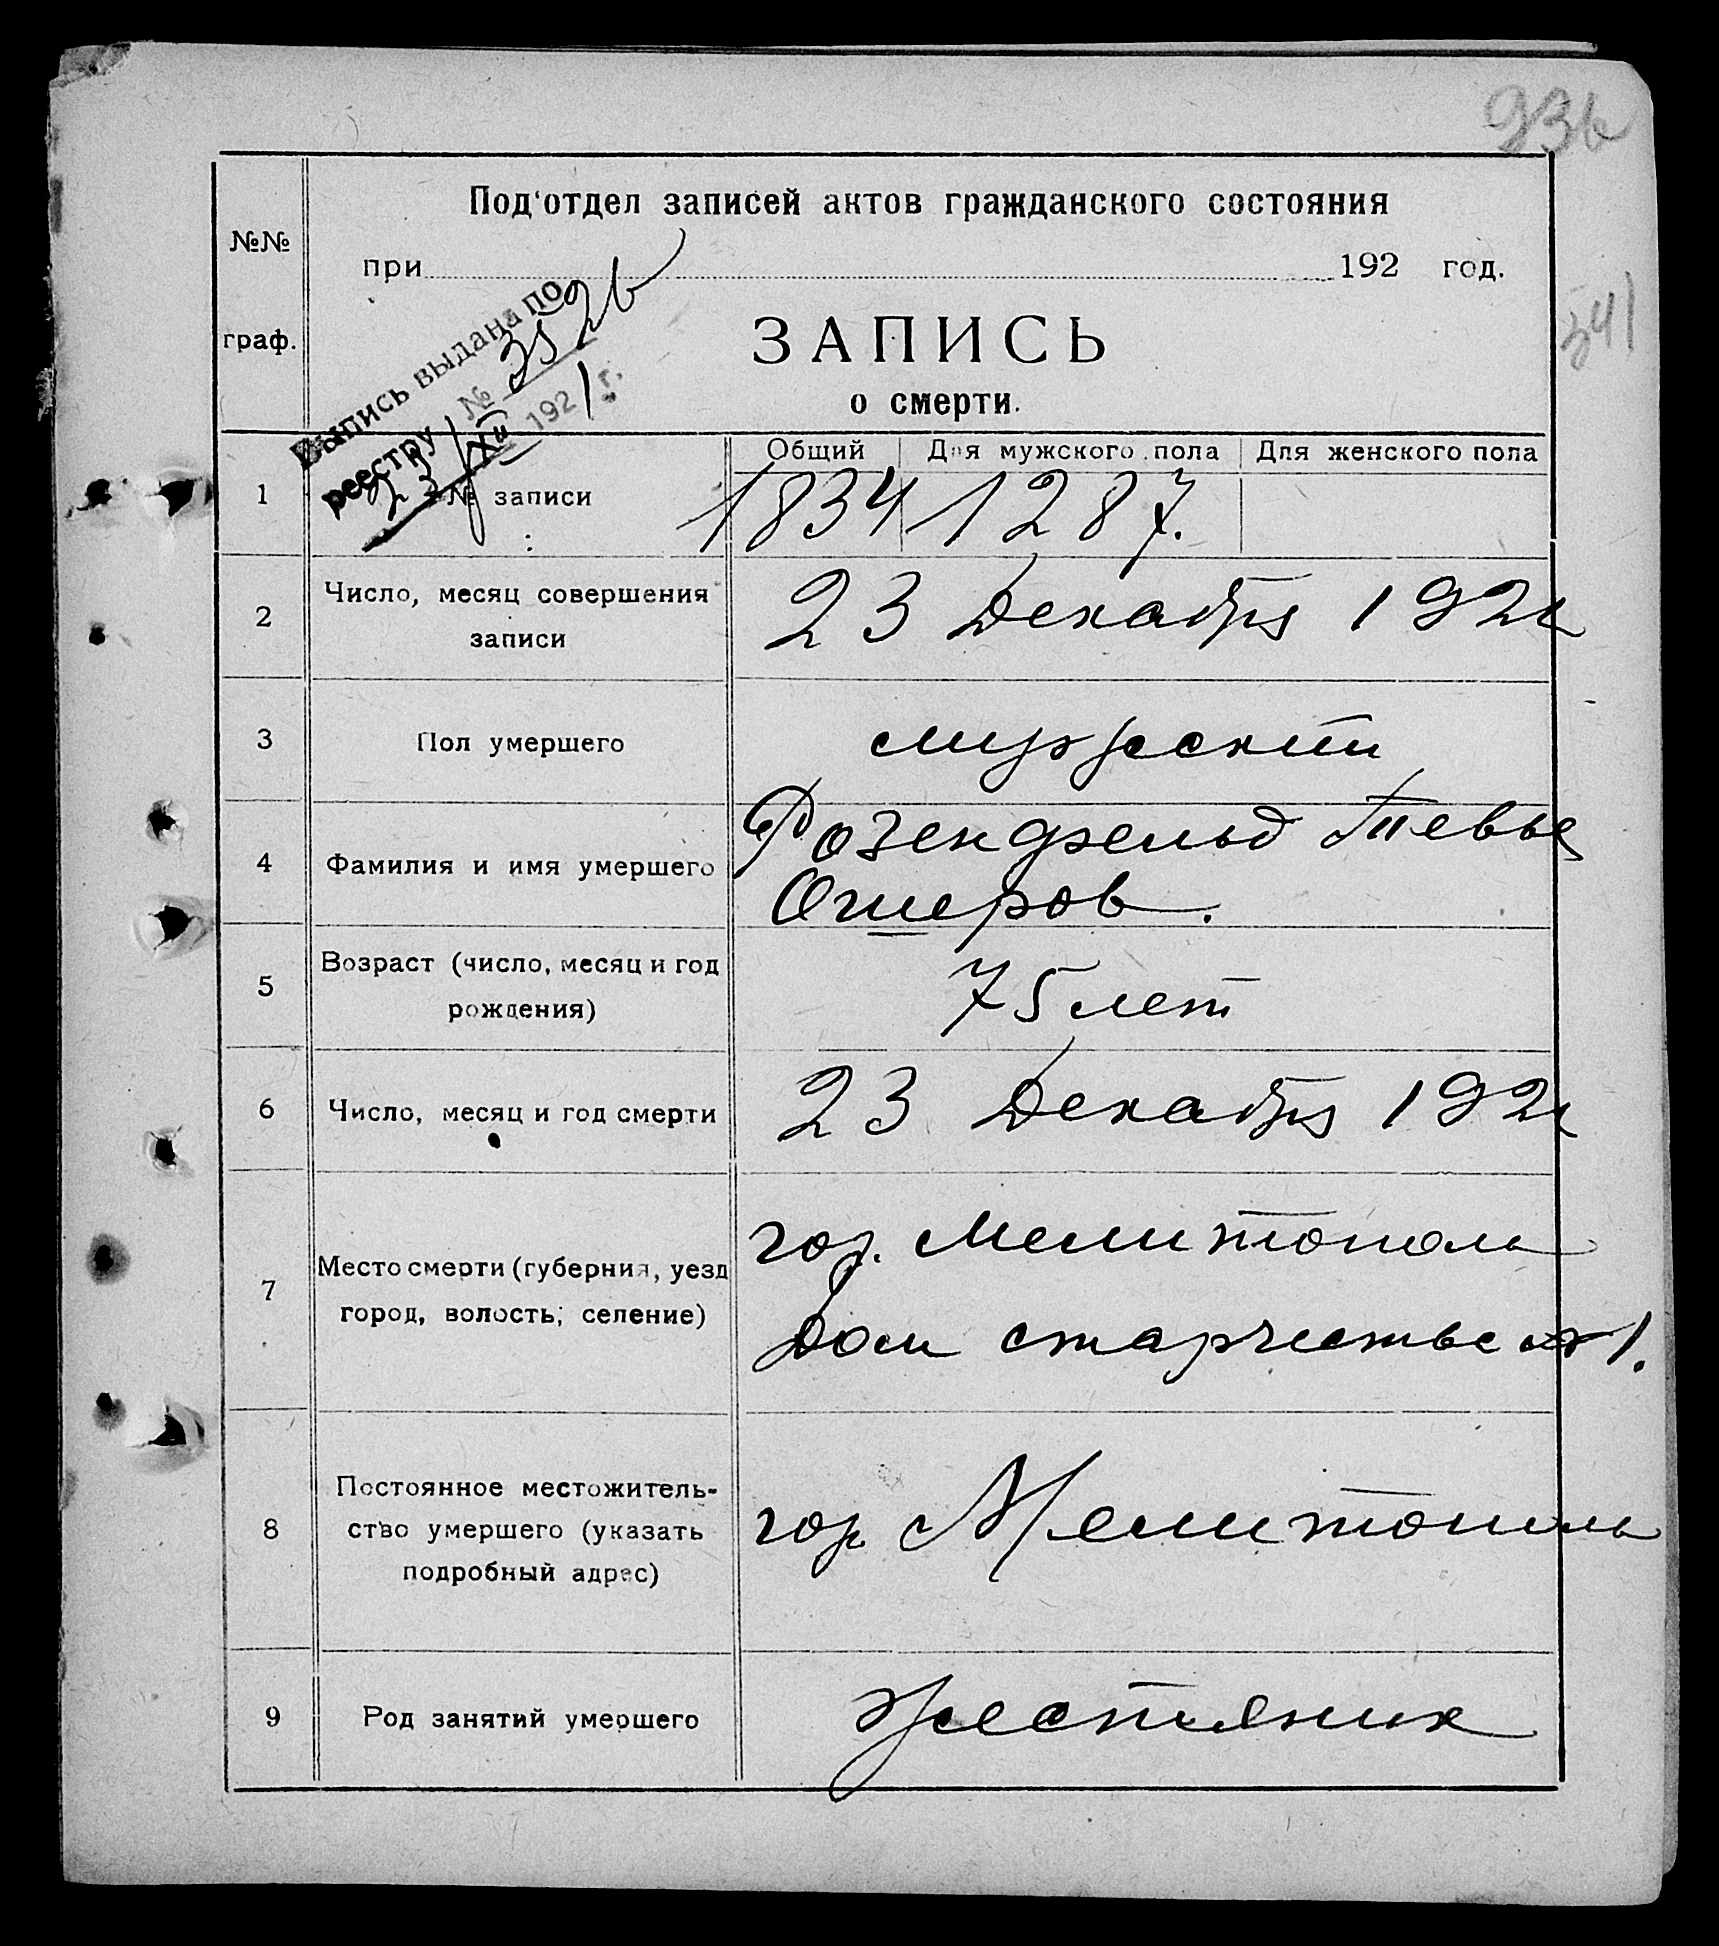 236
Под'отдел записей актов гражданского состояния
№№
граф.
при 192 год.
341
ЗАПИСЬ
о смерти.
Выпись выдана по
реестру № 3526
23/XII 1921 г.
Общий Для мужского пола Для женского пола
1 № записи 1834 1287.
2 Число, месяц совершения
записи
23 Декабря 1921
3 Пол умершего мужской
4 Фамилия и имя умершего
Розенфельд Тевье
Ошеров.
5 Возраст (число, месяц и год
рождения)
75 лет
6 Число, месяц и год смерти 23 Декабря 1921
7 Место смерти (губерния, уезд
город, волость, селение)
гор. Мелитополь
Дом старчества № 1.
8 Постоянное местожитель-
ство умершего (указать
подробный адрес)
гор. Мелитополь
9 Род занятий умершего жестяник